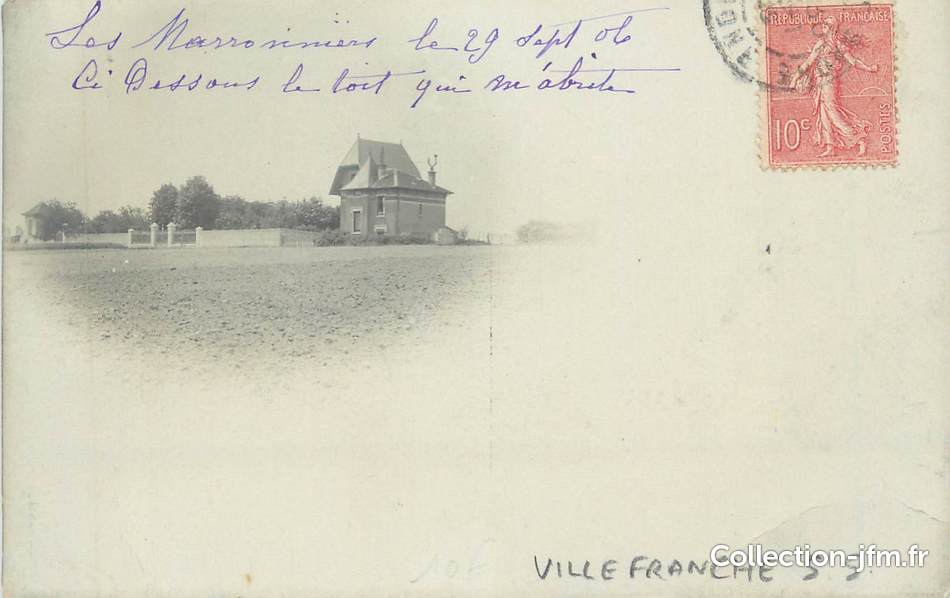 Les Marronniers le 29 Sept 06
Ci Dessous le toit qui m'abrite
REPUBLIQUE FRANÇAISE
10c
POSTES
10f
VILLEFRANCHE S. S.
Collection-jfm.fr